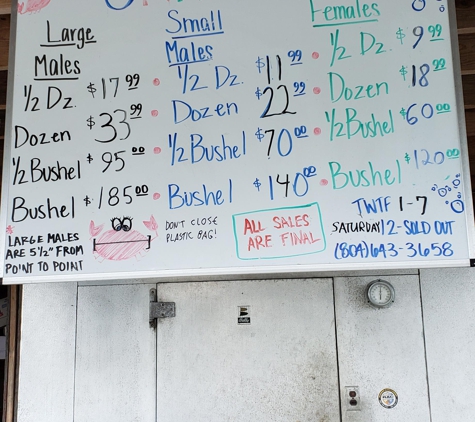 Large
Males
1/2 Dz. $17.99
Dozen $33.99
1/2 Bushel $95.00
Bushel $185.00
LARGE MALES
ARE 5 1/2" FROM
POINT TO POINT
Small
Males
1/2 Dz. $11.99
Dozen $22.99
1/2 Bushel $70.00
Bushel $140.00
DON'T CLOSE
PLASTIC BAG!
ALL SALES
ARE FINAL
Females
1/2 Dz. $9.99
Dozen $18.99
1/2 Bushel $60.00
Bushel $120.00
TWTF 1-7
SATURDAY 12-SOLD OUT
(804)643-3658